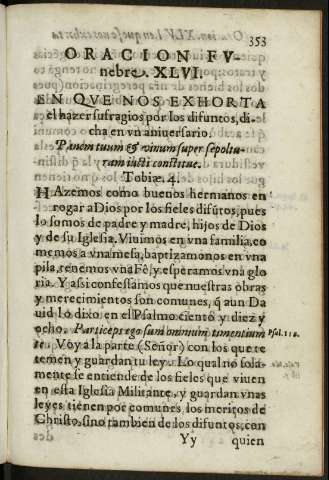 353
ORACION FV-
nebre. XLVI.
EN QVE NOS EXHORTA
el hazer sufragios por los difuntos, di-
cha en vn aniuersario.
Panem tuum & vinum super sepoltu-
ram iusti constitue.
Tobiæ. 4.
HAzemos como buenos hermanos en
rogar a Dios por los fieles difũtos, pues
lo somos de padre y madre, hijos de Dios
y de su Iglesia. Viuimos en vna familia, co
memos a vna mesa, baptizamonos en vna
pila, tenemos vna Fê, y esperamos vna glo
ria. Y assi confessamos que nuestras obras
y merecimientos son comunes, q̃ aun Da
uid lo dixo en el Psalmo ciento y diez y
ocho. Particeps ego sum omnium timentium Psal. 118.
te. Voy a la parte (Señor) con los que te
temen y guardan tu ley. Lo qual no sola-
mente se entiende de los fieles que viuen
en esta Iglesia Militante, y guardan vnas
leyes tienen por comunes, los meritos de
Christo, sino tambien de los difuntos, con
Yy quien